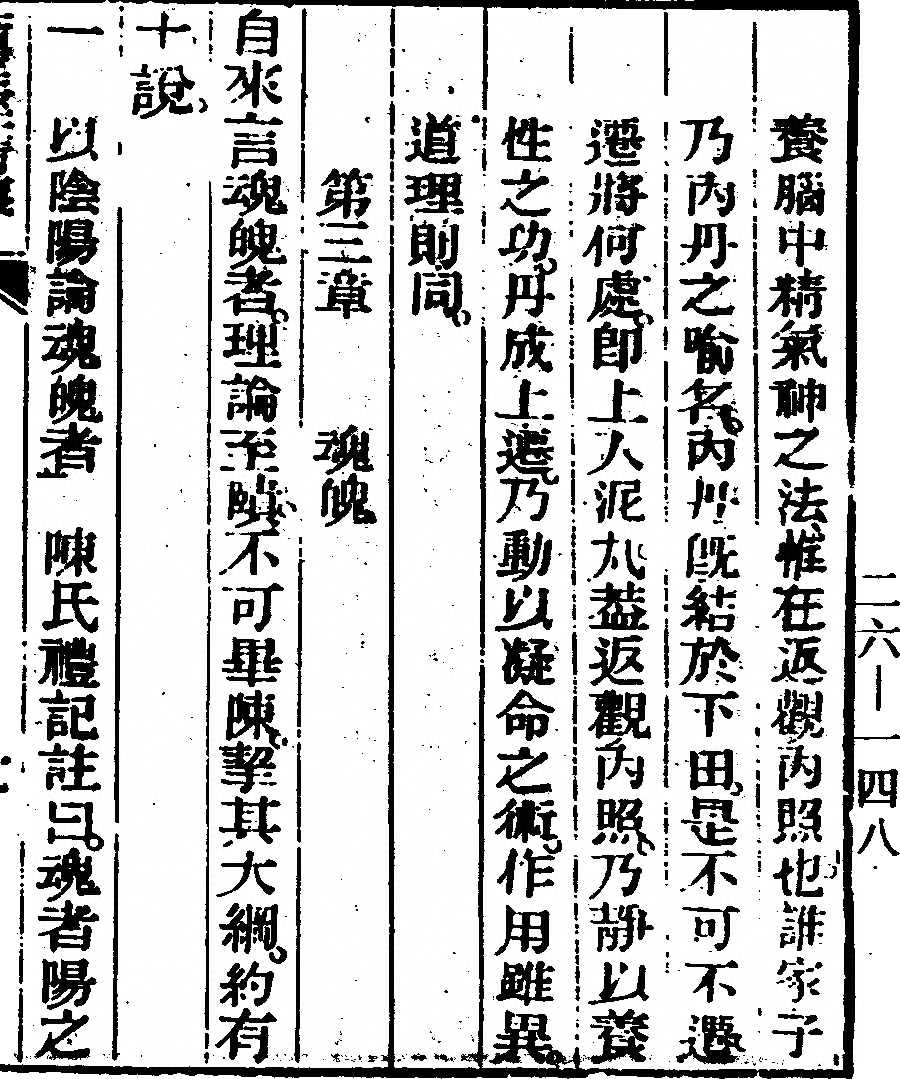 養腦中精氣神之法、惟在返觀內照也、誰家子
乃內丹之喻名。內丹旣結於下田、是不可不遷
遷將何處。卽上人泥丸、葢返觀內照、乃靜以養
性之功。丹成上遷、乃動以凝命之術。作用雖異。
道理則同。
第三章　魂魄
自來言魂魄者。理論至賾、不可畢陳。挈其大綱。約有
十說、
一　以陰陽論魂魄者　陳氏禮記註曰。魂者陽之
二六—一四八